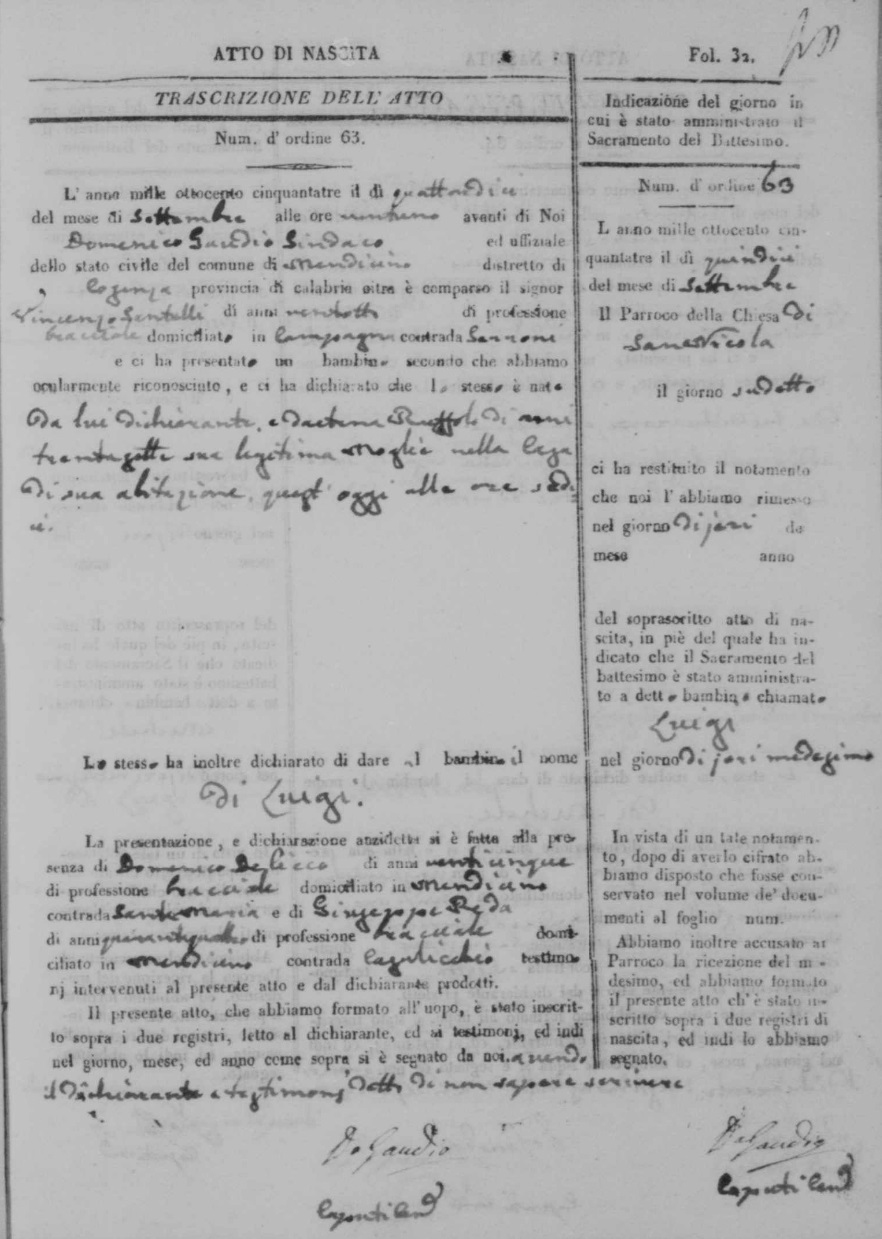 ATTO DI NASCITA
TRASCRIZIONE DELL' ATTO
Num. d' ordine 63.
L' anno mille ottocento cinquantatre il dì quattordici
del mese di Settembre alle ore ventuno avanti di Noi
Domenico Gaudio Sindaco ed uffiziale
dello stato civile del comune di Mendicino distretto di
Cosenza provincia di calabria citra è comparso il signor
Vincenzo Gentelli di anni ventotto di professione
bracciale domiciliato in Campagna contrada
e ci ha presentato un bambino secondo che abbiamo
ocularmente riconosciuto, e ci ha dichiarato che lo stesso è nato
Da lui dichiarante, e da Ruffolo di anni
sua legitima moglie nella casa
di sua abitazione, quest' oggi alle ore sedi
ci.
Lo stesso ha inoltre dichiarato di dare al bambino il nome
di Luigi.
La presentazione, e dichiarazione anzidetta si è fatta alla pre-
senza di Domenico De Cicco di anni venticinque
di professione bracciale domiciliato in Mendicino
contrada Santa Maria e di Giuseppe Reda
di anni di professione bracciale domi-
ciliato in Mendicino contrada testimo-
nj intervenuti al presente atto e dal dichiarante prodotti.
Il presente atto, che abbiamo formato all' uopo, è stato inscrit-
to sopra i due registri, letto al dichiarante, ed ai testimonj, ed indi
nel giorno, mese, ed anno come sopra si è segnato da noi. avendo
il dichiarante e testimonj detto di non sapere scrivere
De Gaudio
Fol. 32.
Indicazione del giorno in
cui è stato amministrato il
Sacramento del Battesimo.
Num. d' ordine 63
L anno mille ottocento cin-
quantatre il dì quindici
del mese di Settembre
Il Parroco della Chiesa di
San Nicola
il giorno sudetto
ci ha restituito il notamento
che noi l' abbiamo rimesso
nel giorno di jeri de
mese anno
del soprascritto atto di na-
scita, in piè del quale ha in-
dicato che il Sacramento del
battesimo è stato amministra-
to a detto bambino chiamato
Luigi
nel giorno di jeri medesimo
In vista di un tale notamen-
to, dopo di averlo cifrato ab-
biamo disposto che fosse con-
servato nel volume de' docu-
menti al foglio num.
Abbiamo inoltre accusato al
Parroco la ricezione del m-
desimo, ed abbiamo formato
il presente atto ch' è stato in-
scritto sopra i due registri di
nascita, ed indi lo abbiamo
segnato.
De Gaudio